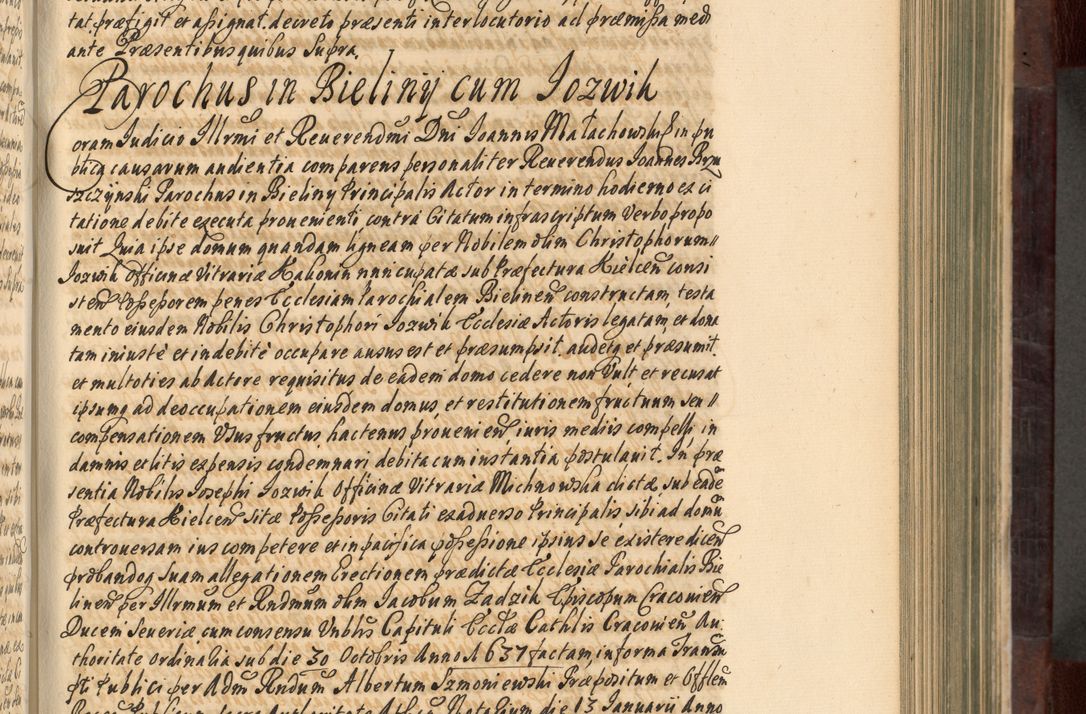 tat. præfigit et assignat. decreto præsenti interlocutorio ad præmissa medi
ante Præsentibus quibus Supra.
Parochus in Bieliny cum Jozwik
Coram Judicio Illrmi et Reuerendmi Dni Joannis Małachowski in pu
blica causarum audientia comparens personaliter Reuerendus Joannes Bru
szczynski Parochus in Bieliny Principalis Actor in termino hodierno ex ci
tatione debite executa prouenienti contra Citatum infrascriptum Verbo propo
suit Quia ipse domum quandam ligneam per Nobilem olim Christophorum
Jozwik officinæ Vitrariæ Hakonin nuncupatæ sub Præfectura Kielcen consi
sten Possessorem penes Ecclesiam Parochialem Bielinen constructam, testa
mento eiusdem Nobilis Christophori Jozwik Ecclesiæ Actoris legatam, et dona
tam iniustè et indebitè occupare ausus est et præsumpsit. audetq et præsumit.
et multoties ab Actore requisitus de eadem domo cedere non Vult et recusat
ipsumq ad deoccupationem eiusdem domus et restitutionem fructuum seu
compensationem Vsusfructus, hactenus prouenien, iuris mediis compelli in
damnis et litis expensis condemnari debita cum instantia postulauit. In præ
sentia Nobilis Josephi Jozwik Officinæ Vitrariæ Michnowska dictæ, sub eade
Præfectura Kielcen sitæ Possessoris Citati ex aduerso Principalis, sibi ad domu
controuersam ius competere et in pacifica possessione ipsius se existere dicen
probandoq suam allegationem Erectionem prædictæ Ecclesiæ Parochialis Bie
linen per Illrmum et Rndmum olim Jacobum Zadzik Episcopum Cracouien
Ducem Seueriæ cum consensu Vnblis Capituli Ecclæ Cathlis Cracouien Au
thoritate ordinaria sub die 30 Octobris Anno 1637 factam, in forma Transu
pti Publici per Adm Rndum Albertum Szmoniewski Præpositum et Offlem
die 13 Januarii Anno